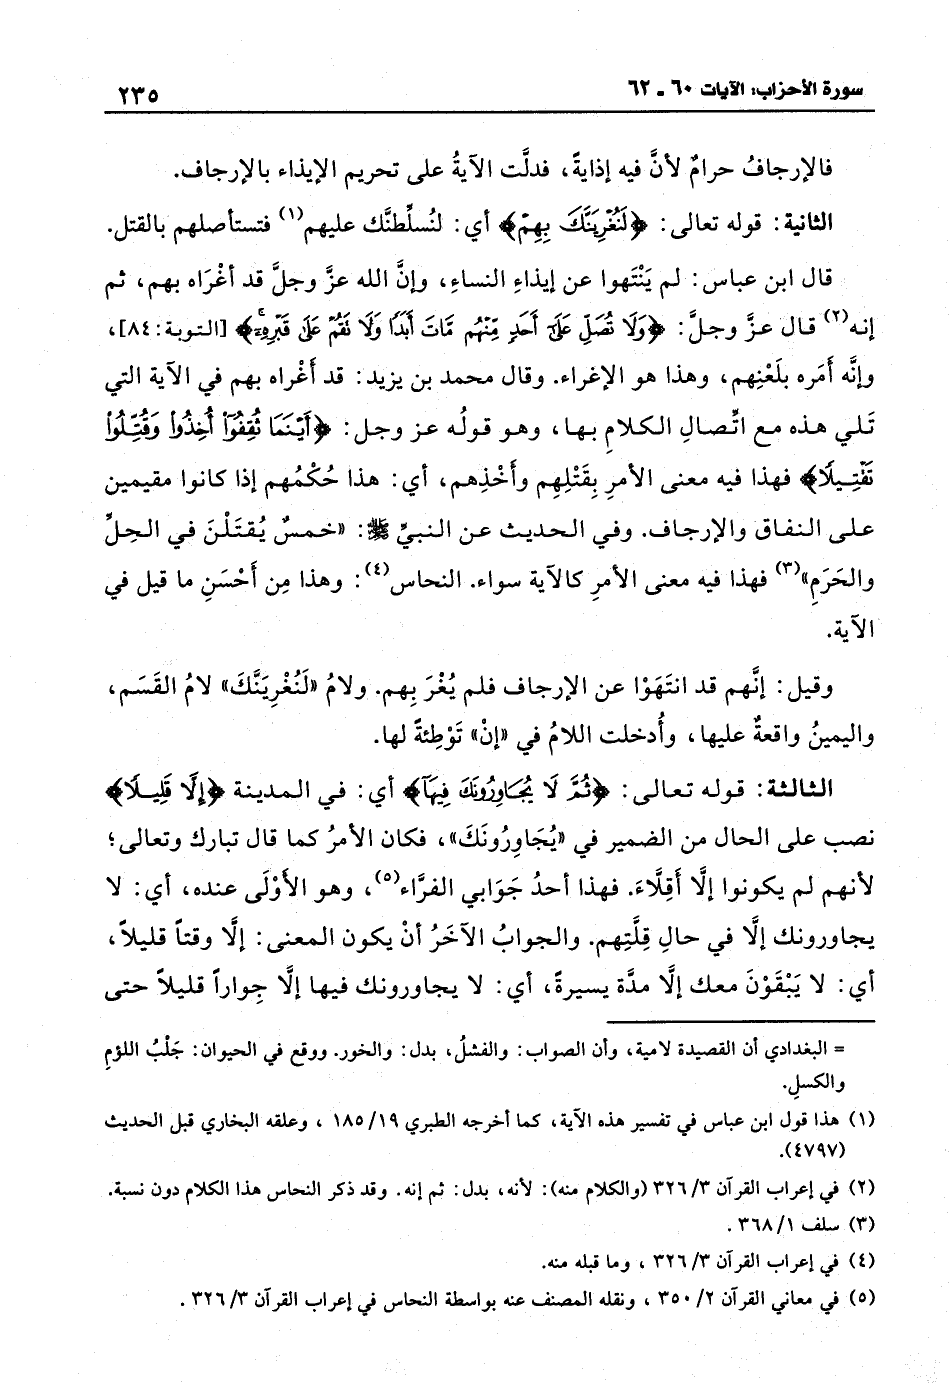 سورة الأحزاب: الآيات ٦٠ ـ ٦٢
٢٣٥
فالإرجافُ حرامٌ لأنَّ فيه إذايةً، فدلَّت الآيةُ على تحريم الإيذاء بالإرجاف.
الثانية: قوله تعالى: ﴿لَنُغْرِيَنَّكَ بِهِمْ﴾ أي: لنُسلِّطنَّك عليهم(١) فتستأصلهم بالقتل.
قال ابن عباس: لم يَنْتَهوا عن إيذاءِ النساءِ، وإنَّ الله عزَّ وجلَّ قد أغْرَاه بهم، ثم
إنه(٢) قال عزَّ وجلَّ: ﴿وَلَا تُصَلِّ عَلَىٰٓ أَحَدٍ مِّنْهُم مَّاتَ أَبَدًا وَلَا نَقُمْ عَلَىٰ قَبْرِهِۦٓ﴾ [التوبة: ٨٤]،
وإنَّه أمَره بلَعْنِهم، وهذا هو الإغراء. وقال محمد بن يزيد: قد أَغْراه بهم في الآية التي
تَلي هذه مع اتِّصالِ الكلامِ بها، وهو قولُه عز وجل: ﴿أَيْنَمَا ثُقِفُوٓا۟ أُخِذُوا۟ وَقُتِّلُوا۟
تَقْتِيلًا﴾ فهذا فيه معنى الأمرِ بِقَتْلِهم وأَخْذِهم، أي: هذا حُكْمُهم إذا كانوا مقيمين
على النفاق والإرجاف. وفي الحديث عن النبيِّ ﷺ: «خمسٌ يُقتَلْنَ في الحِلِّ
والحَرَمِ»(٣) فهذا فيه معنى الأمرِ كالآية سواء. النحاس(٤): وهذا مِن أَحْسَنِ ما قيل في
الآية.
وقيل: إنَّهم قد انتَهَوْا عن الإرجاف فلم يُغْرَ بِهم. ولامُ «لَنُغْرِيَنَّكَ» لامُ القَسَم،
واليمينُ واقعةٌ عليها، وأُدخلت اللامُ في «إنْ» تَوْطِئةً لها.
الثالثة: قوله تعالى: ﴿ثُمَّ لَا يُجَاوِرُونَكَ فِيهَآ﴾ أي: في المدينة ﴿إِلَّا قَلِيلًا﴾
نصب على الحال من الضمير في «يُجَاوِرُونَكَ»، فكان الأمرُ كما قال تبارك وتعالى؛
لأنهم لم يكونوا إلَّا أَقِلَّاءَ. فهذا أحدُ جَوَابي الفرَّاء(٥)، وهو الأَوْلَى عنده، أي: لا
يجاورونك إلَّا في حالِ قِلَّتِهم. والجوابُ الآخَرُ أنْ يكون المعنى: إلَّا وقتاً قليلاً،
أي: لا يَبْقَوْنَ معك إلَّا مدَّة يسيرةً، أي: لا يجاورونك فيها إلَّا جِواراً قليلاً حتى
= البغدادي أن القصيدة لامية، وأن الصواب: والفشلُ، بدل: والخور. ووقع في الحيوان: جَلْبُ اللؤمِ
والكسلِ.
(١) هذا قول ابن عباس في تفسير هذه الآية، كما أخرجه الطبري ١٩/ ١٨٥ ، وعلقه البخاري قبل الحديث
(٤٧٩٧).
(٢) في إعراب القرآن ٣/ ٣٢٦ (والكلام منه): لأنه، بدل: ثم إنه. وقد ذكر النحاس هذا الكلام دون نسبة.
(٣) سلف ١/ ٣٦٨ .
(٤) في إعراب القرآن ٣/ ٣٢٦ ، وما قبله منه.
(٥) في معاني القرآن ٢/ ٣٥٠ ، ونقله المصنف عنه بواسطة النحاس في إعراب القرآن ٣/ ٣٢٦ .